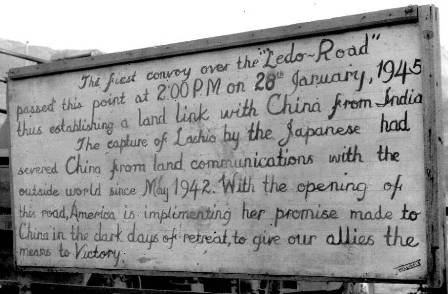 The first convoy over the "Ledo-Road"
passed this point at 2:00 P.M on 28th January, 1945
thus establishing a land link with China from India
The capture of Lashio by the Japanese had
severed China from land communications with the
outside world since May 1942. With the opening of
this road, America is implimenting her promise made to
China in the dark days of retreat, to give our allies the
means to Victory.